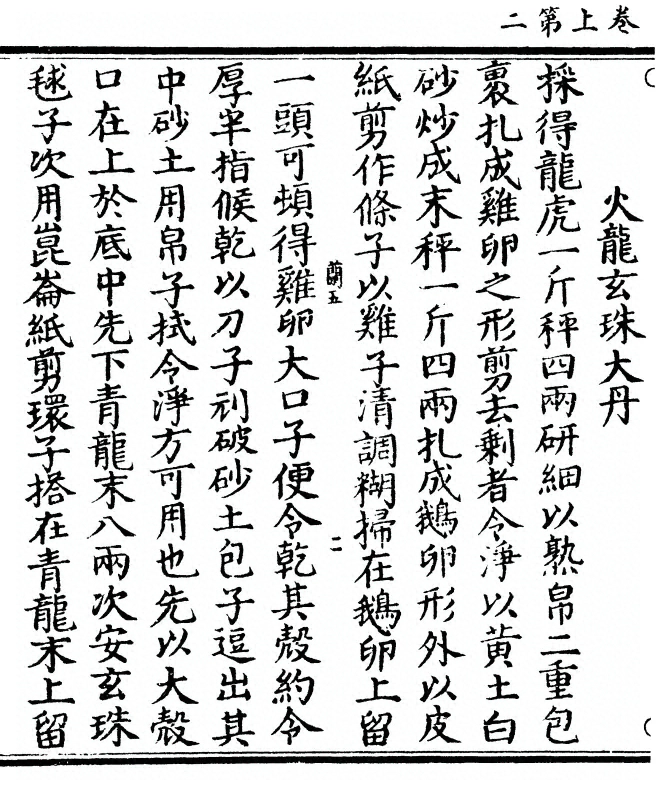 卷上第二
火龍玄珠大丹
採得龍虎一斤秤四兩研細以熟帛二重包
裹扎成雞卵之形剪去剩者令淨以黃土白
砂炒成末秤一斤四兩扎成鵝卵形外以皮
紙剪作條子以雞子清調糊掃在鵝卵上留
蘭五
二
一頭可頓得雞卵大口子便令乾其殼約令
厚半指候乾以刀子刋破砂土包子逗出其
中砂土用帛子拭令淨方可用也先以大殼
口在上於底中先下青龍末八兩次安玄珠
毬子次用崑崙紙剪環子搭在青龍末上留